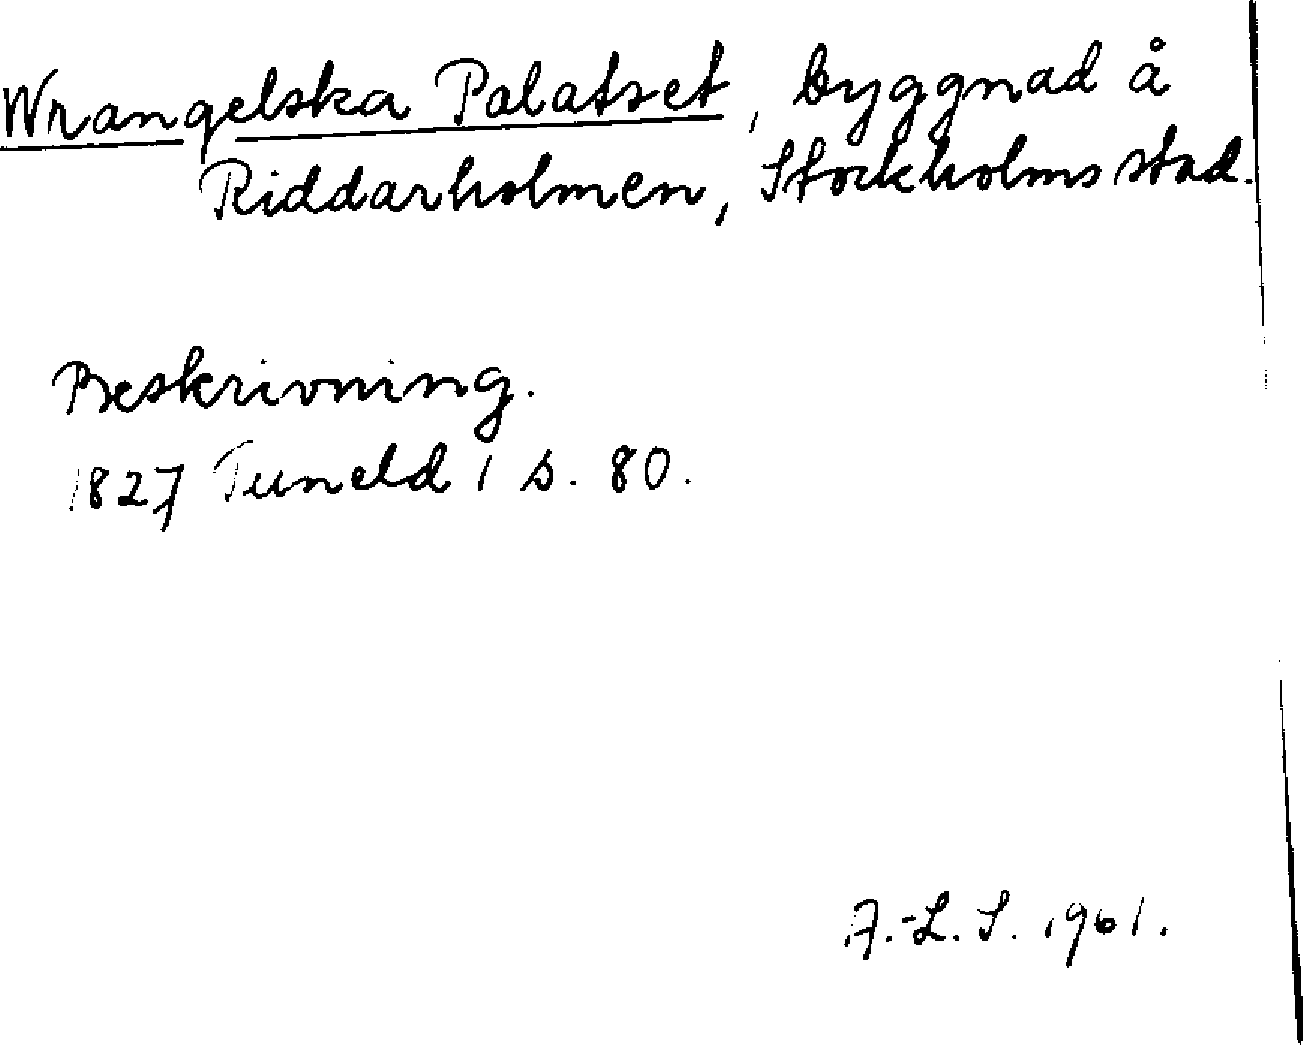 Wrangelska Palatset, byggnad å
Riddarholmen, Stockholms stad.
Beskrivning.
1827 Tuneld 1 s. 80.
A.-L. S. 1961.